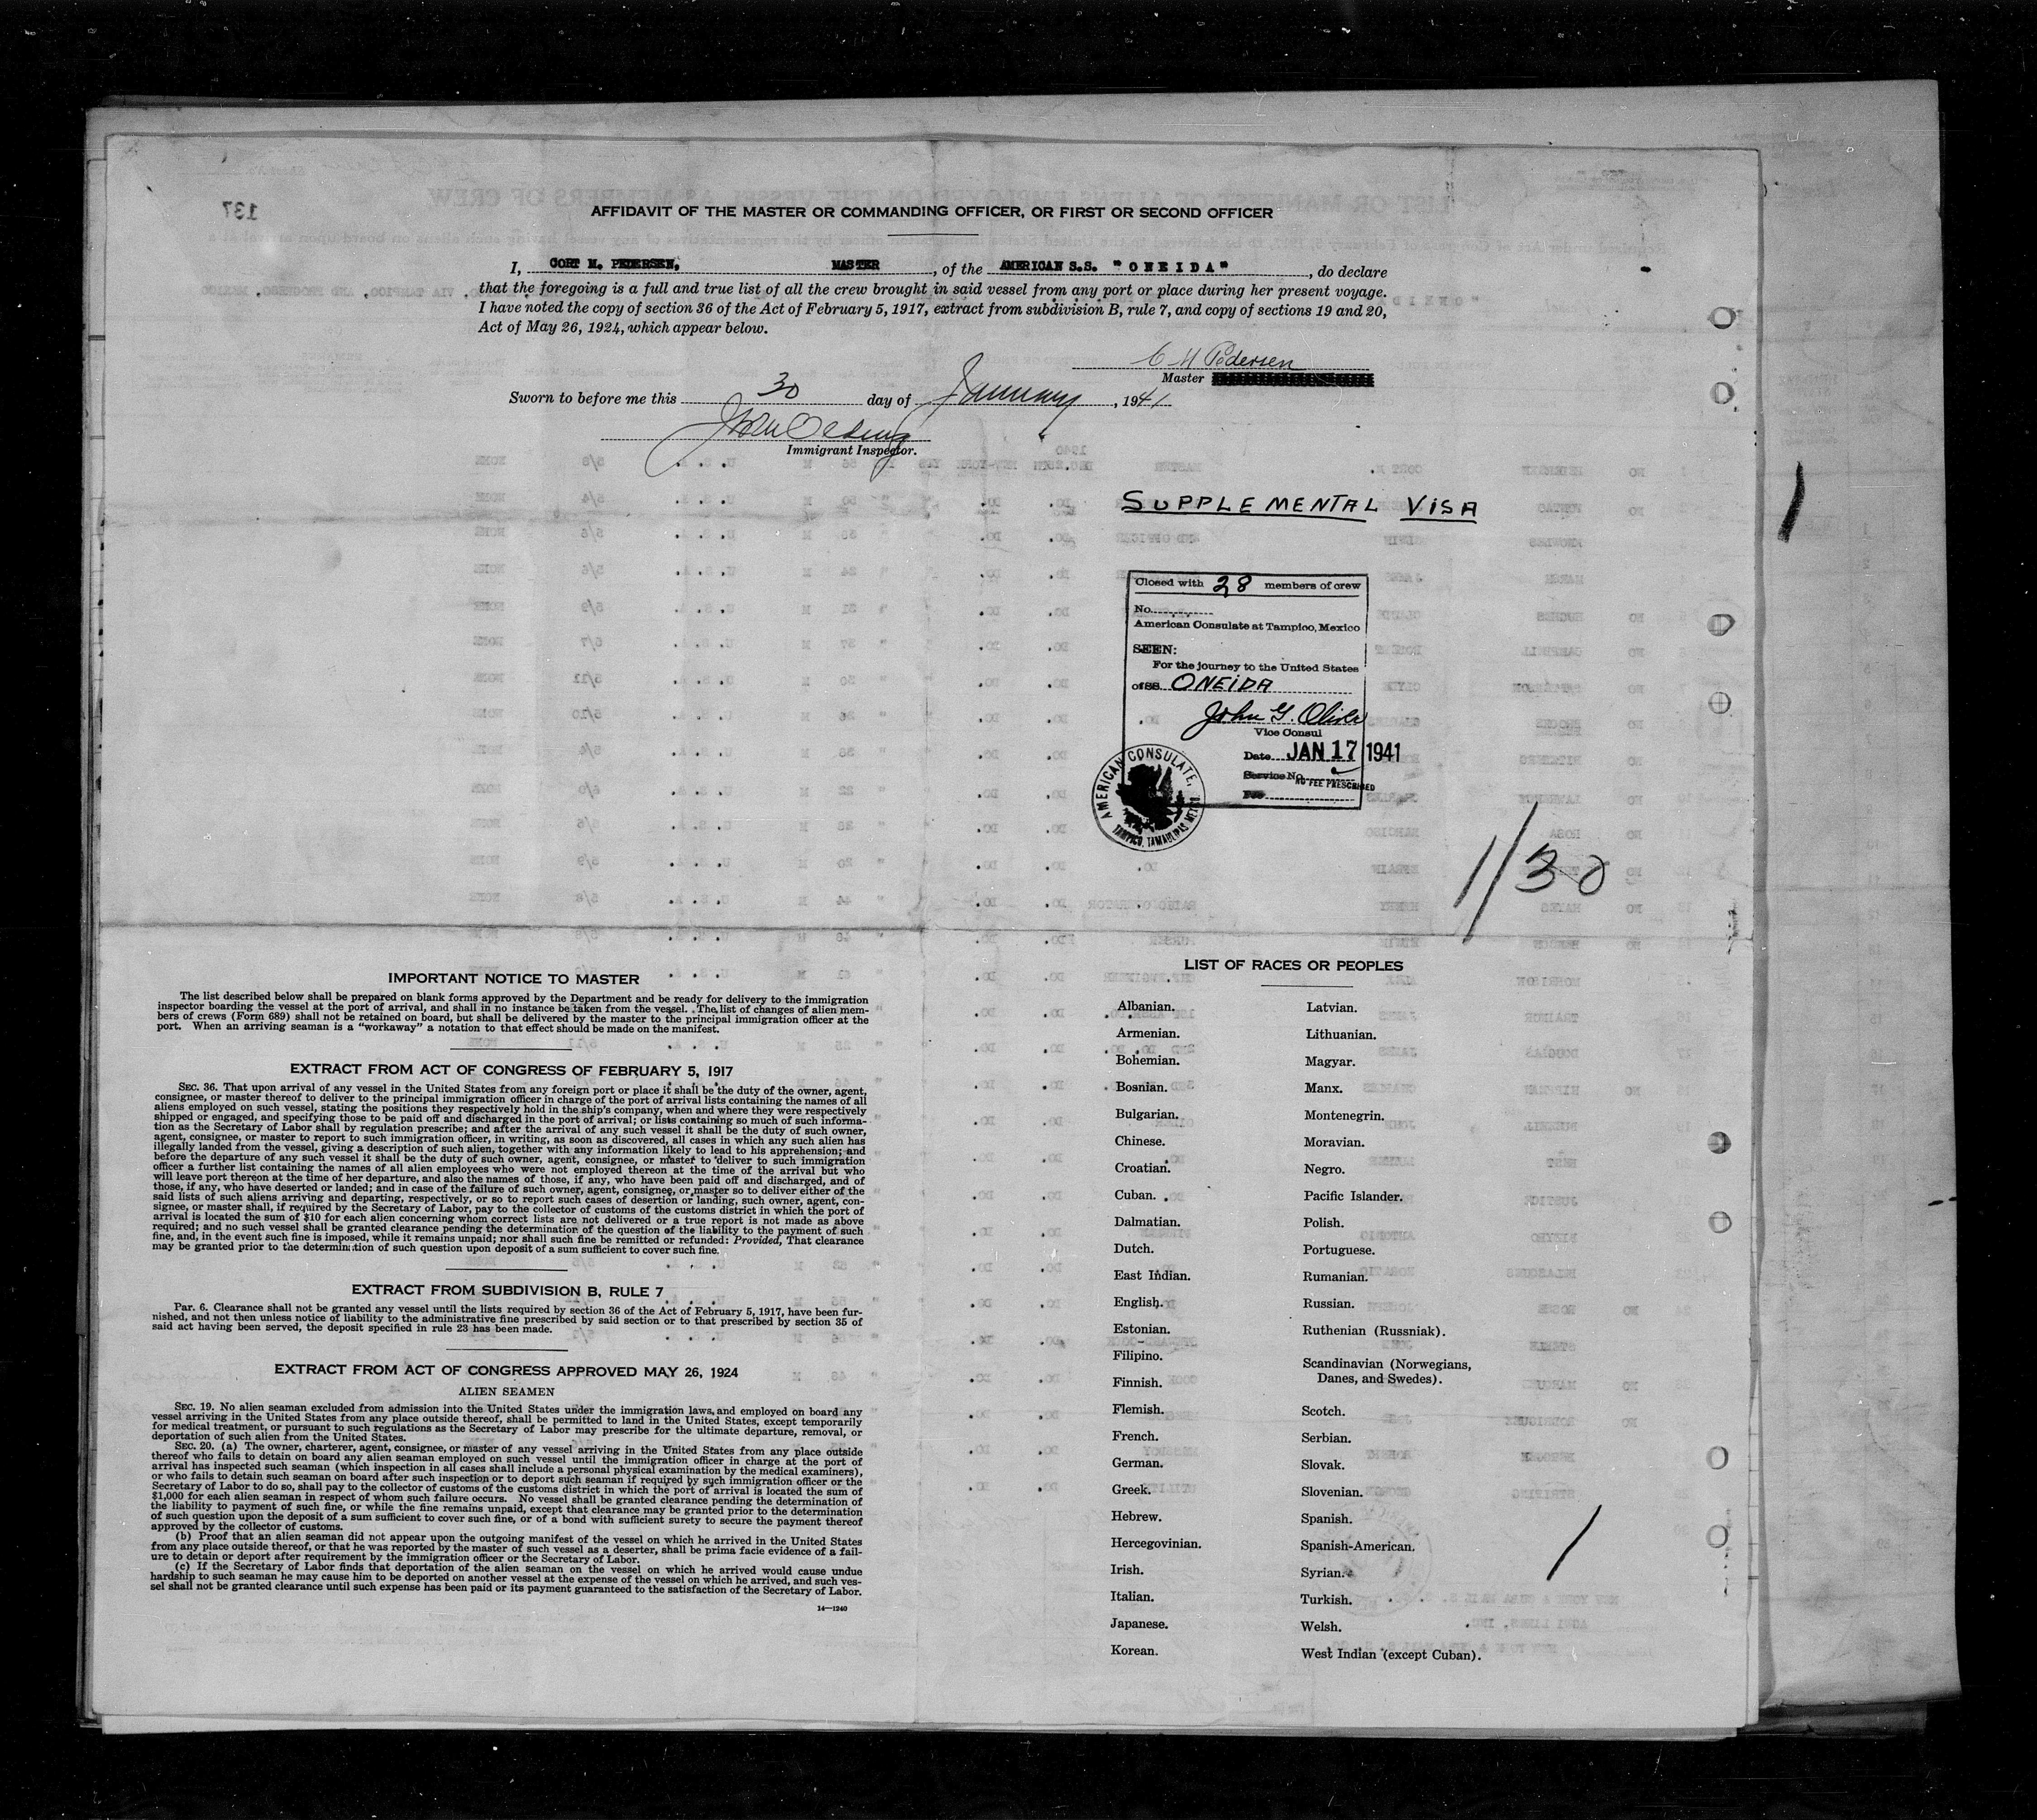 137
AFFIDAVIT OF THE MASTER OR COMMANDING OFFICER, OR FIRST OR SECOND OFFICER
I, CORT M. PEDERSEN, MASTER, of the AMERICAN S.S. "ONEIDA", do declare
that the foregoing is a full and true list of all the crew brought in said vessel from any port or place during her present voyage.
I have noted the copy of section 36 of the Act of February 5, 1917, extract from subdivision B, rule 7, and copy of sections 19 and 20,
Act of May 26, 1924, which appear below.
C M Pedersen
Master
Sworn to before me this 30 day of January, 1941
Immigrant Inspector.
SUPPLEMENTAL VISA
Closed with 28 members of crew
No.
American Consulate at Tampico, Mexico
SEEN:
For the journey to the United States
of SS. ONEIDA
John G. Oliver
Vice Consul
Date JAN 17 1941
Service No.
NO FEE PRESCRIBED
Fee
AMERICAN CONSULATE,
TAMPICO, TAMAULIPAS, MEXICO
1/30
IMPORTANT NOTICE TO MASTER
The list described below shall be prepared on blank forms approved by the Department and be ready for delivery to the immigration
inspector boarding the vessel at the port of arrival, and shall in no instance be taken from the vessel. The list of changes of alien mem-
bers of crews (Form 689) shall not be retained on board, but shall be delivered by the master to the principal immigration officer at the
port. When an arriving seaman is a "workaway" a notation to that effect should be made on the manifest.
EXTRACT FROM ACT OF CONGRESS OF FEBRUARY 5, 1917
SEC. 36. That upon arrival of any vessel in the United States from any foreign port or place it shall be the duty of the owner, agent,
consignee, or master thereof to deliver to the principal immigration officer in charge of the port of arrival lists containing the names of all
aliens employed on such vessel, stating the positions they respectively hold in the ship's company, when and where they were respectively
shipped or engaged, and specifying those to be paid off and discharged in the port of arrival; or lists containing so much of such informa-
tion as the Secretary of Labor shall by regulation prescribe; and after the arrival of any such vessel it shall be the duty of such owner,
agent, consignee, or master to report to such immigration officer, in writing, as soon as discovered, all cases in which any such alien has
illegally landed from the vessel, giving a description of such alien, together with any information likely to lead to his apprehension; and
before the departure of any such vessel it shall be the duty of such owner, agent, consignee, or master to deliver to such immigration
officer a further list containing the names of all alien employees who were not employed thereon at the time of the arrival but who
will leave port thereon at the time of her departure, and also the names of those, if any, who have been paid off and discharged, and of
those, if any, who have deserted or landed; and in case of the failure of such owner, agent, consignee, or master so to deliver either of the
said lists of such aliens arriving and departing, respectively, or so to report such cases of desertion or landing, such owner, agent, con-
signee, or master shall, if required by the Secretary of Labor, pay to the collector of customs of the customs district in which the port of
arrival is located the sum of $10 for each alien concerning whom correct lists are not delivered or a true report is not made as above
required; and no such vessel shall be granted clearance pending the determination of the question of the liability to the payment of such
fine, and, in the event such fine is imposed, while it remains unpaid; nor shall such fine be remitted or refunded: Provided, That clearance
may be granted prior to the determination of such question upon deposit of a sum sufficient to cover such fine.
EXTRACT FROM SUBDIVISION B, RULE 7
Par. 6. Clearance shall not be granted any vessel until the lists required by section 36 of the Act of February 5, 1917, have been fur-
nished, and not then unless notice of liability to the administrative fine prescribed by said section or to that prescribed by section 35 of
said act having been served, the deposit specified in rule 23 has been made.
EXTRACT FROM ACT OF CONGRESS APPROVED MAY 26, 1924
ALIEN SEAMEN
SEC. 19. No alien seaman excluded from admission into the United States under the immigration laws, and employed on board any
vessel arriving in the United States from any place outside thereof, shall be permitted to land in the United States, except temporarily
for medical treatment, or pursuant to such regulations as the Secretary of Labor may prescribe for the ultimate departure, removal, or
deportation of such alien from the United States.
SEC. 20. (a) The owner, charterer, agent, consignee, or master of any vessel arriving in the United States from any place outside
thereof who fails to detain on board any alien seaman employed on such vessel until the immigration officer in charge at the port of
arrival has inspected such seaman (which inspection in all cases shall include a personal physical examination by the medical examiners),
or who fails to detain such seaman on board after such inspection or to deport such seaman if required by such immigration officer or the
Secretary of Labor to do so, shall pay to the collector of customs of the customs district in which the port of arrival is located the sum of
$1,000 for each alien seaman in respect of whom such failure occurs. No vessel shall be granted clearance pending the determination of
the liability to payment of such fine, or while the fine remains unpaid, except that clearance may be granted prior to the determination
of such question upon the deposit of a sum sufficient to cover such fine, or of a bond with sufficient surety to secure the payment thereof
approved by the collector of customs.
(b) Proof that an alien seaman did not appear upon the outgoing manifest of the vessel on which he arrived in the United States
from any place outside thereof, or that he was reported by the master of such vessel as a deserter, shall be prima facie evidence of a fail-
ure to detain or deport after requirement by the immigration officer or the Secretary of Labor.
(c) If the Secretary of Labor finds that deportation of the alien seaman on the vessel on which he arrived would cause undue
hardship to such seaman he may cause him to be deported on another vessel at the expense of the vessel on which he arrived, and such ves-
sel shall not be granted clearance until such expense has been paid or its payment guaranteed to the satisfaction of the Secretary of Labor.
14—1240
LIST OF RACES OR PEOPLES
Albanian.
Armenian.
Bohemian.
Bosnian.
Bulgarian.
Chinese.
Croatian.
Cuban.
Dalmatian.
Dutch.
East Indian.
English.
Estonian.
Filipino.
Finnish.
Flemish.
French.
German.
Greek.
Hebrew.
Hercegovinian.
Irish.
Italian.
Japanese.
Korean.
Latvian.
Lithuanian.
Magyar.
Manx.
Montenegrin.
Moravian.
Negro.
Pacific Islander.
Polish.
Portuguese.
Rumanian.
Russian.
Ruthenian (Russniak).
Scandinavian (Norwegians,
Danes, and Swedes).
Scotch.
Serbian.
Slovak.
Slovenian.
Spanish.
Spanish-American.
Syrian.
Turkish.
Welsh.
West Indian (except Cuban).